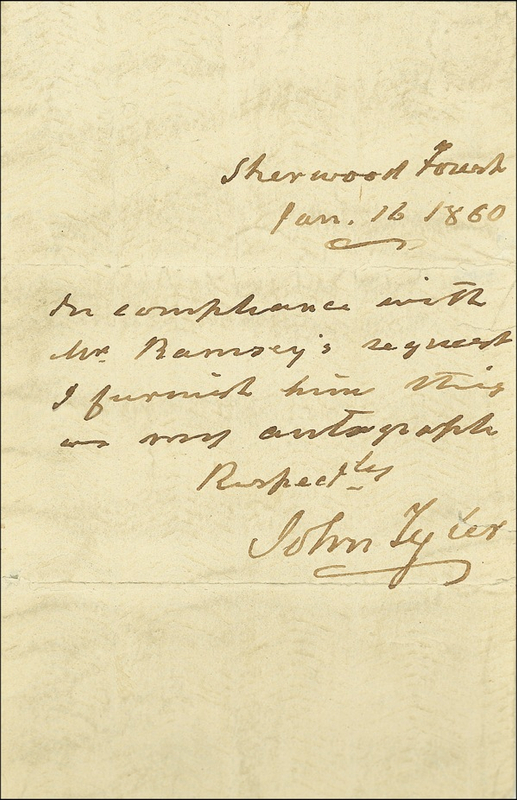 Sherwood Forest
Jan. 16 1860
In compliance with
Mr. Ramsey's request
I furnish him this
as my autograph
Respectly
John Tyler